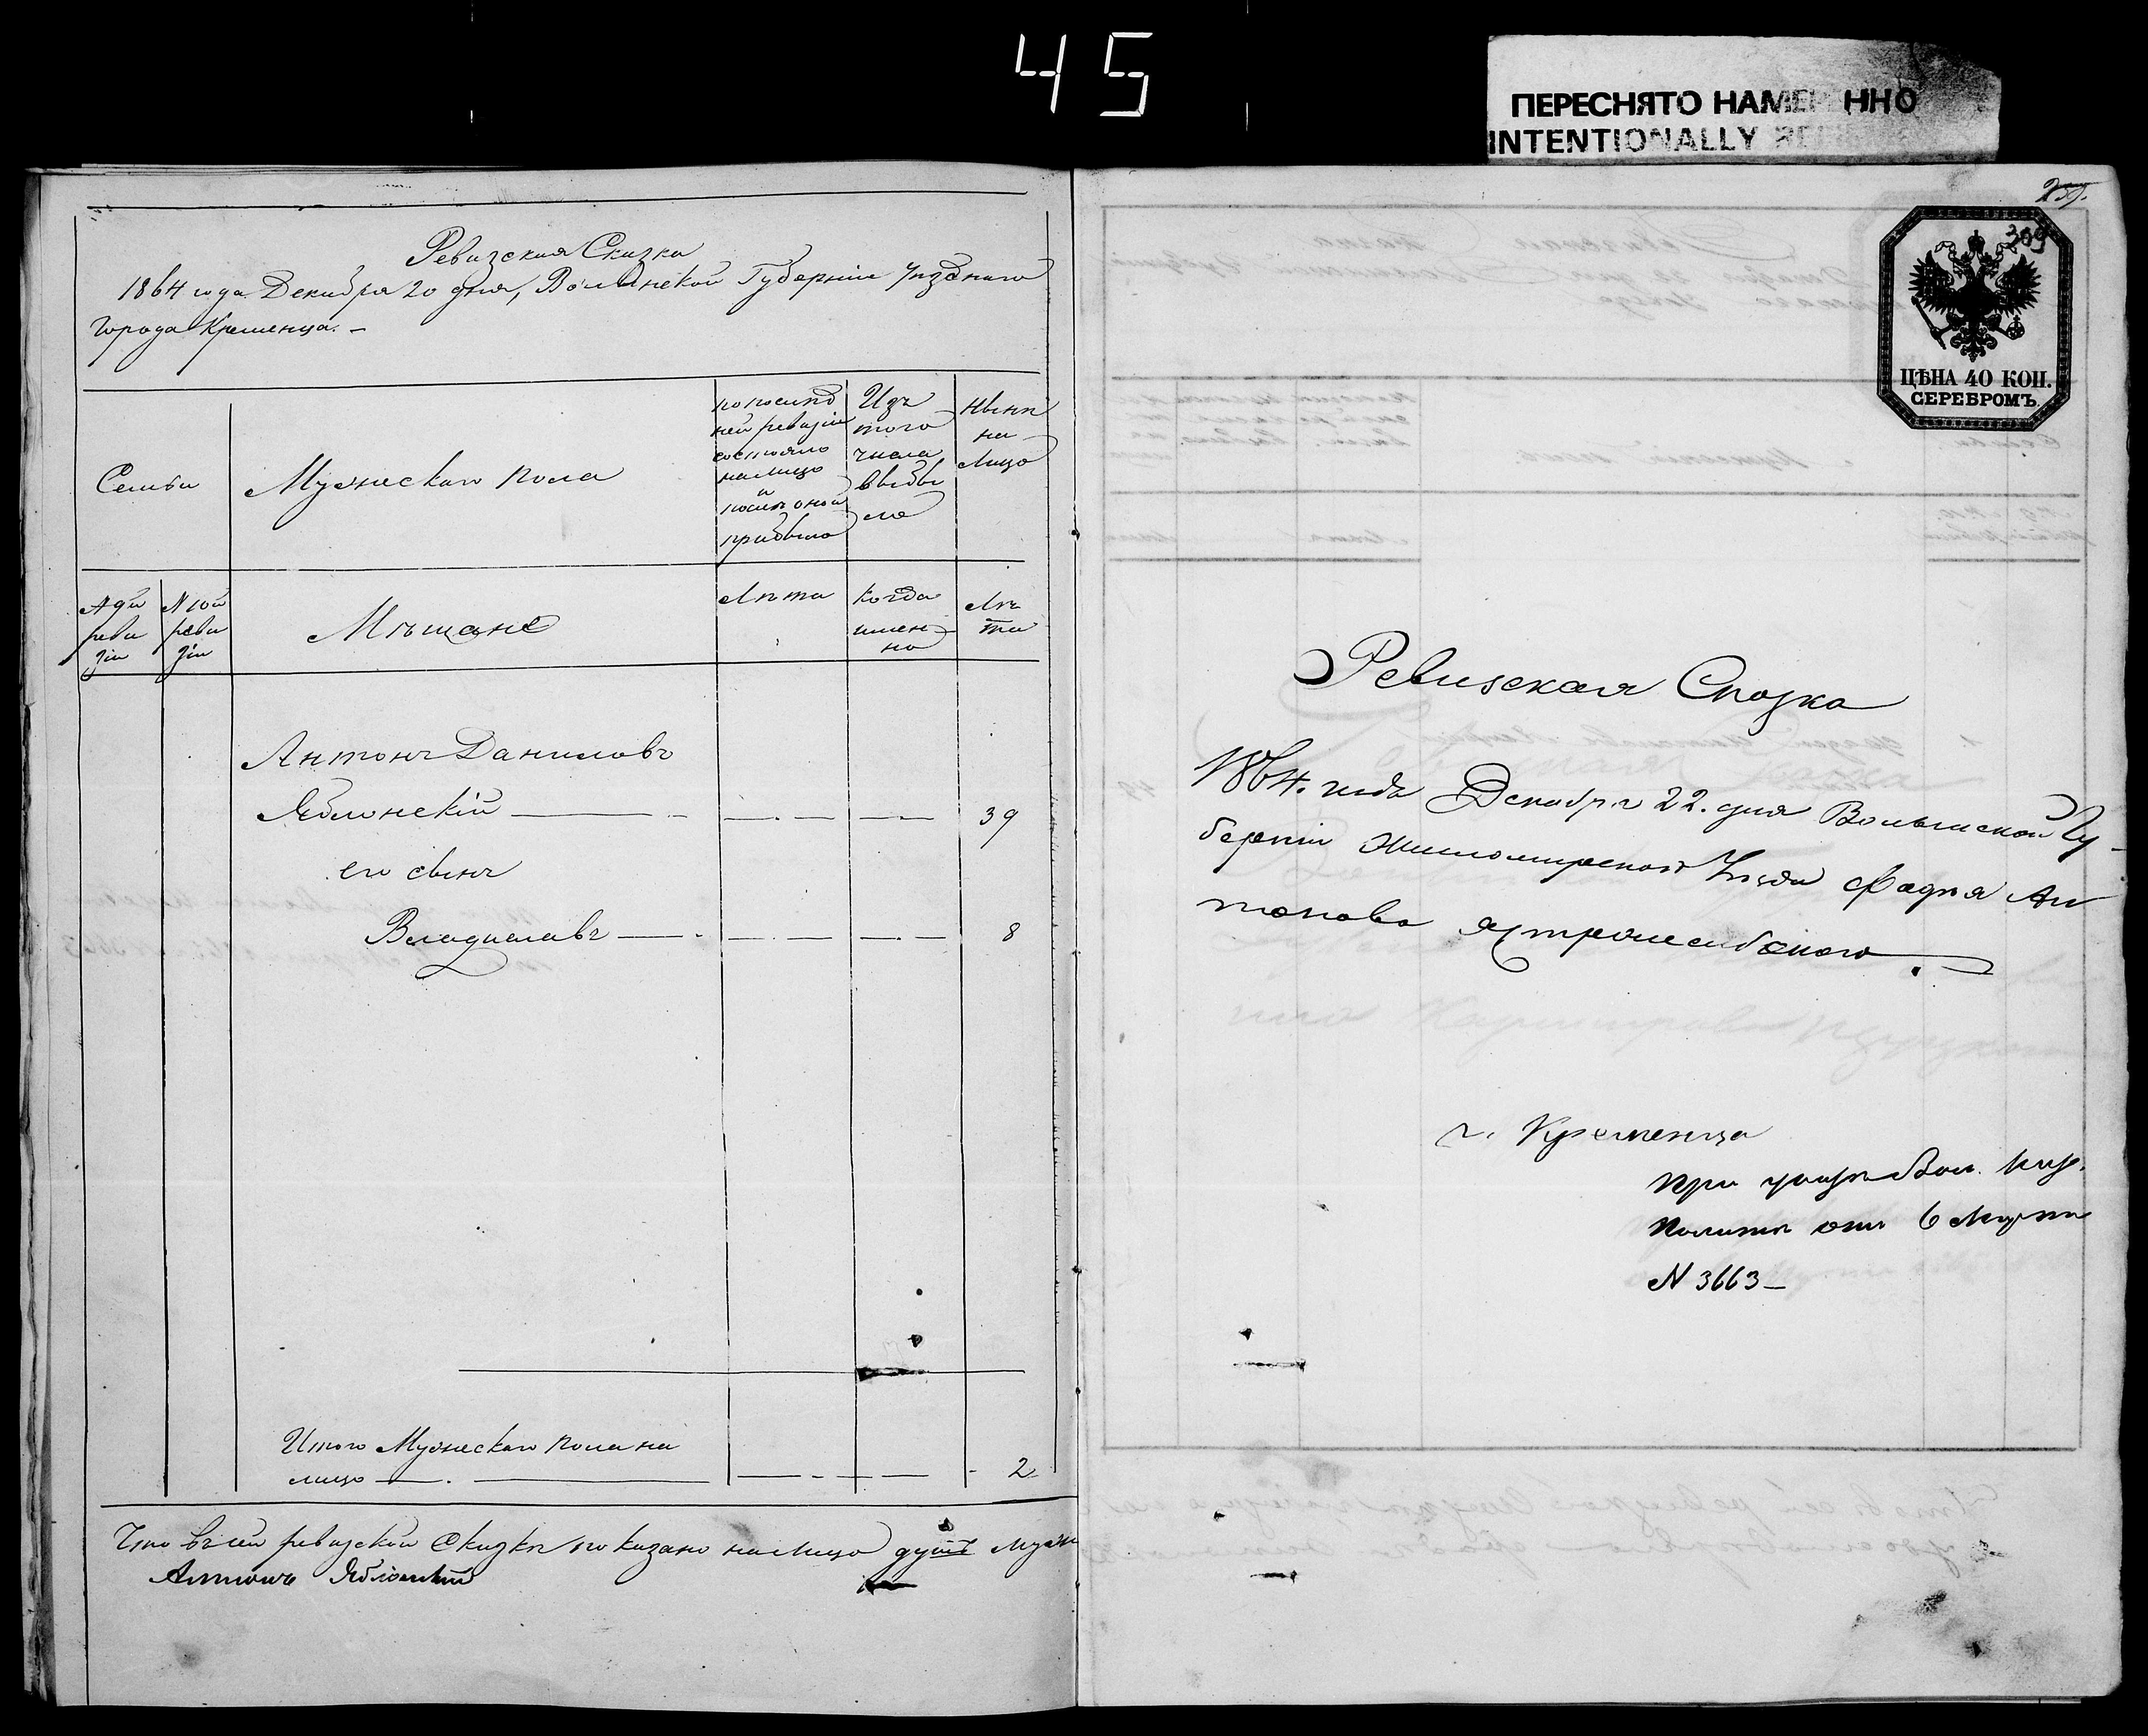 45
ПЕРЕСНЯТО НАМЕР ННО
INTENTIONALLY
Ревизская Сказка
1864 года Декабря 20 дня, Волынской Губерніи Уѣзднаго
Города Кременца. —
Семьи
Мужескаго пола
по послѣд
ней ревизіи
состояло
на лицо
и
послѣ оной
прибыло
Изъ
того
числа
выбы
ло
Нынѣ
на
лицо
реви
зіи
N 10й
реви
зіи
Мѣщане
Лѣта
Когда
имен
но
Лѣ
та
Антонъ Даниловъ
Яблонскій — — — 39
его сынъ
Владиславъ — — — 8
Итого Мужескаго пола на
лицо — — — 2
Что въ сей ревизской Сказкѣ показано на лицо душъ муж
Антонъ Яблонскій
309
ЦѢНА 40 КОП.
СЕРЕБРОМЪ.
Ревизская Сказка
1864. года Декабря 22. дня Волынской Гу-
берніи Житомирскаго Уѣзда Фадѣя Ан
тонова
г. Кременца
При
Палаты отъ 6 Марта
N 3663 —